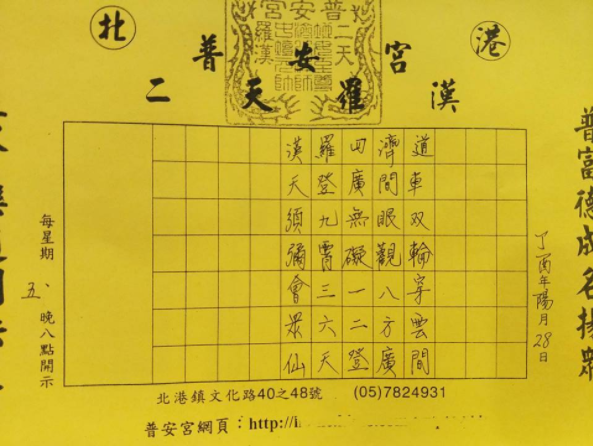 北 港
普安宮
二天羅漢
普富德成名揚眾
丁酉年陽月28日
道車双輪穿雲間
濟間眼觀八方廣
四廣無礙一二登
羅登九霄三六天
漢天須彌會眾仙
每星期五、晚八點開示
北港鎮文化路40之48號 (05)7824931
普安宮網頁：http://i